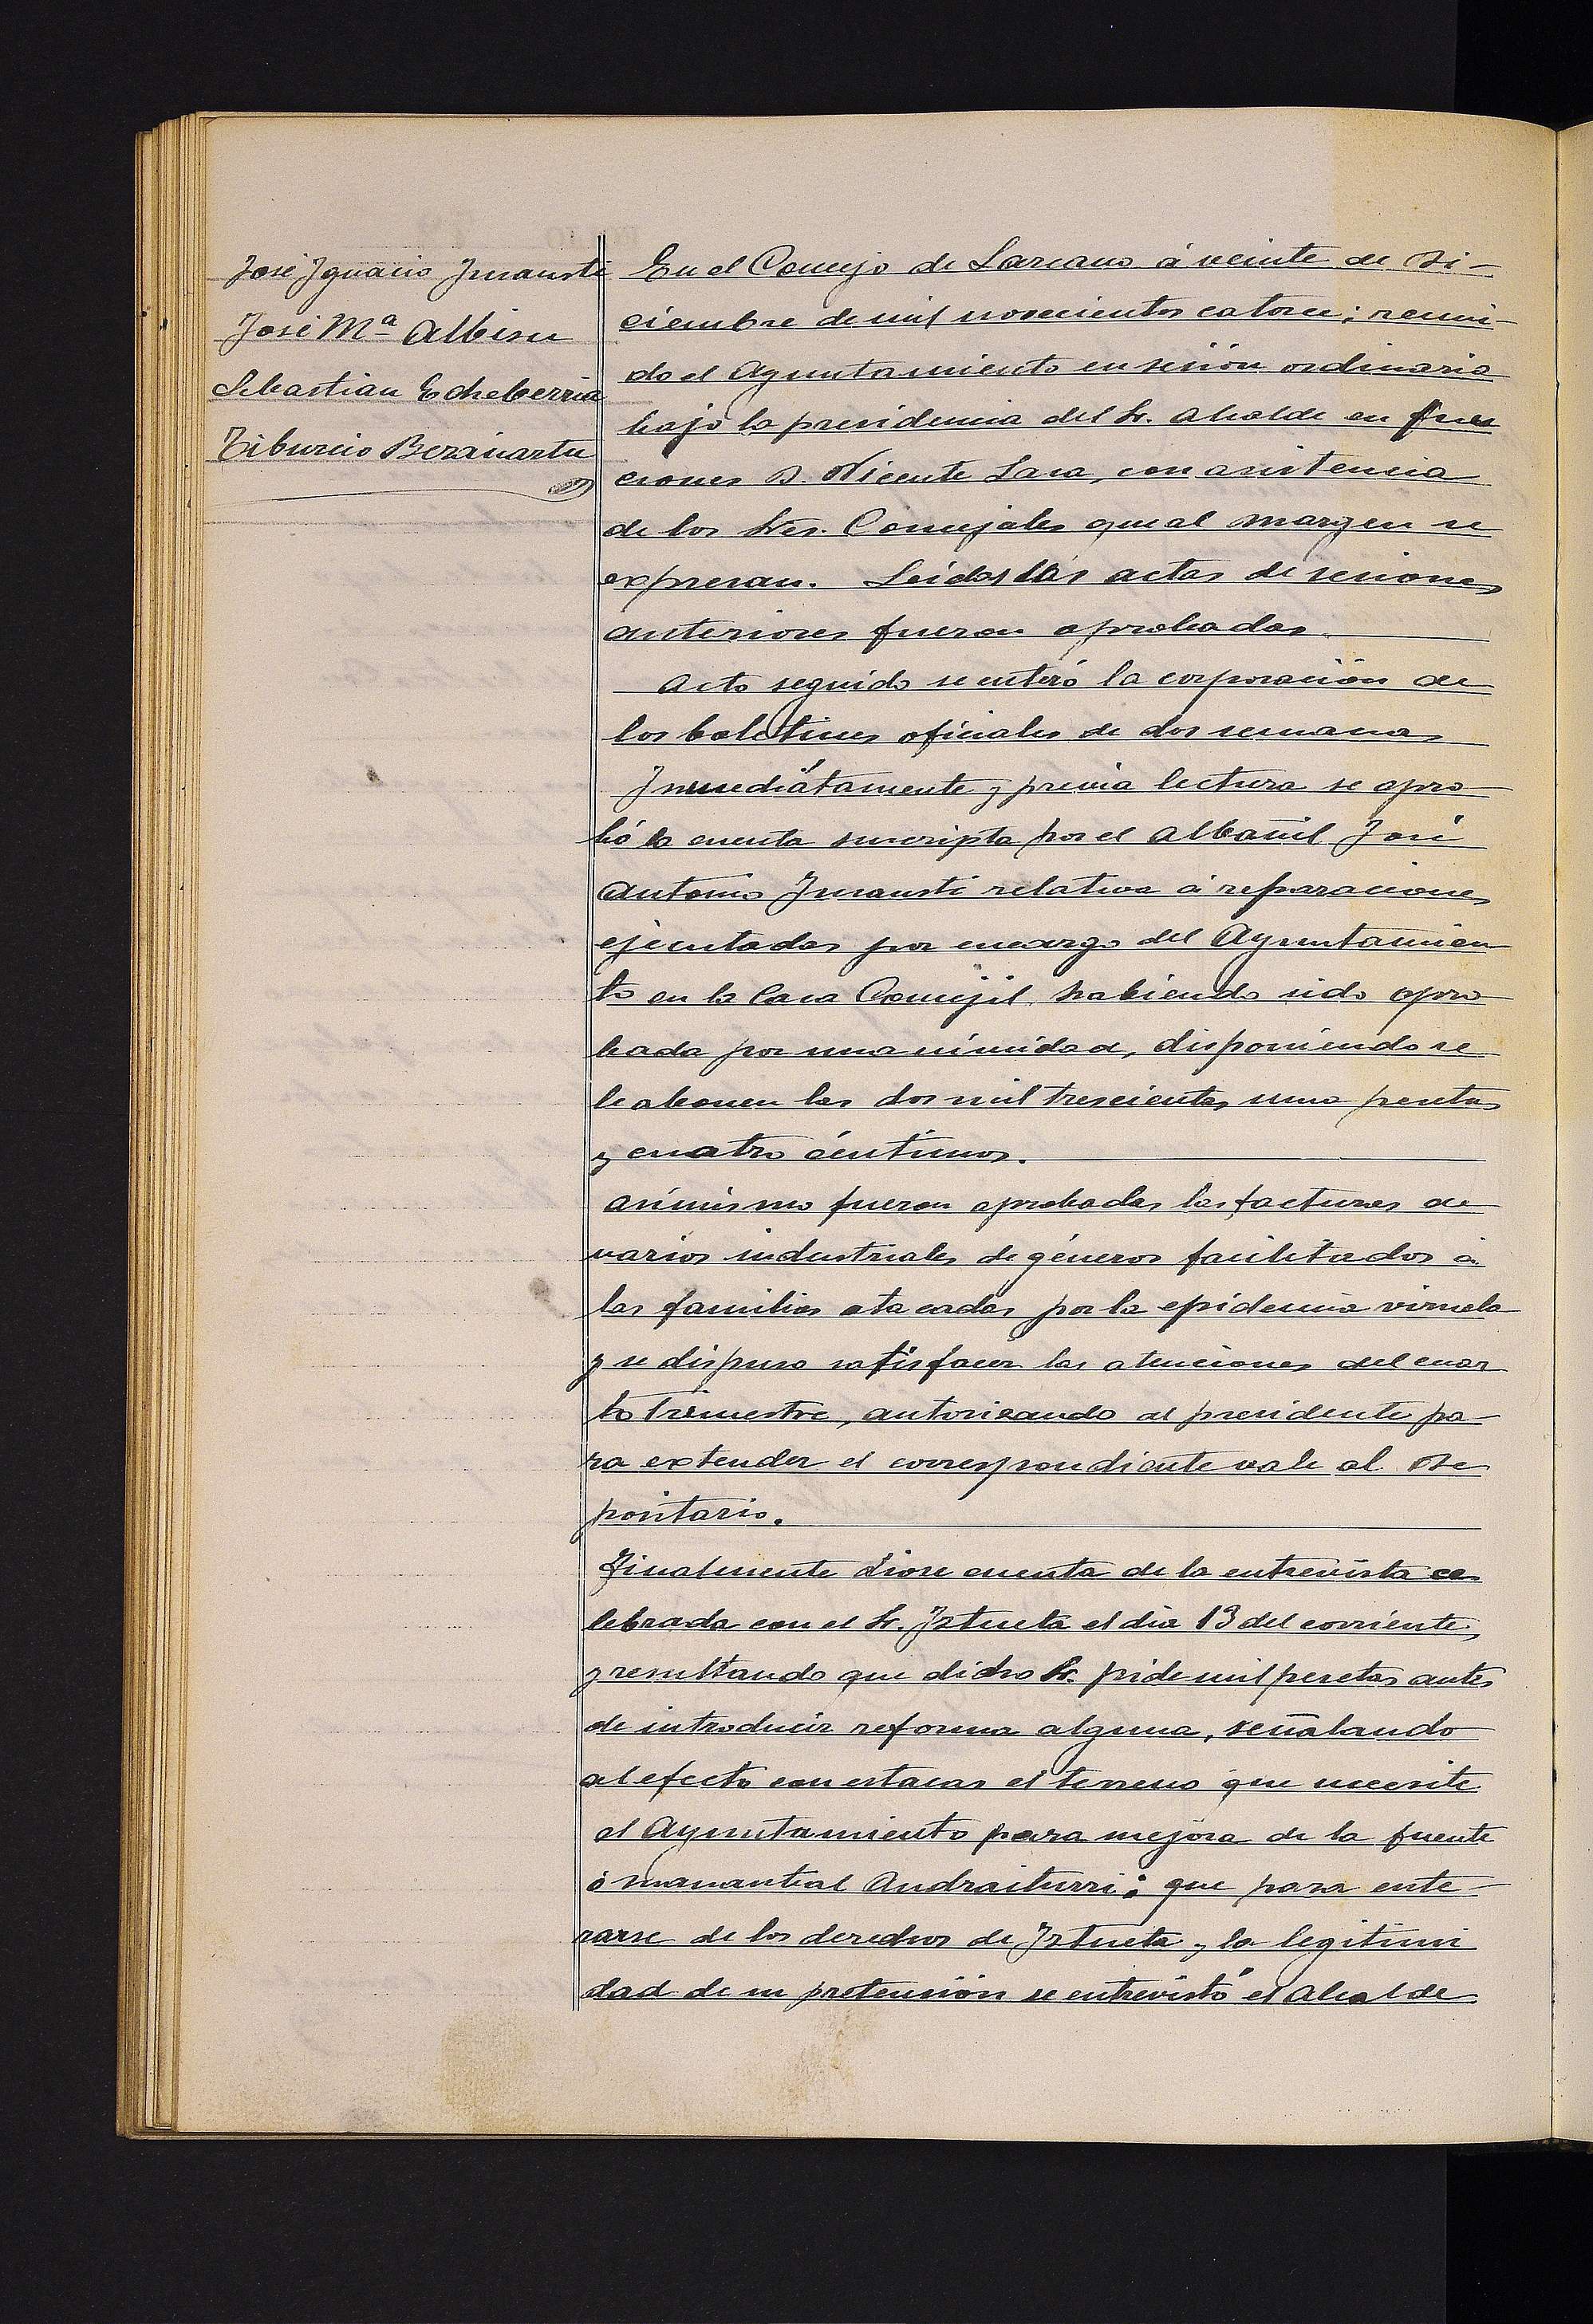 José Ygnacio Ynsausti
José Mª Albisu
Sebastian Echeberria
Tiburcio Berasiartu
En el Concejo de Lazcano á veinte de Di-
ciembre de mil novecientos catorce; reuni-
do el Ayuntamiento en sesión ordinaria
bajo la presidencia del Sr. Alcalde en fun
ciones D. Vicente Lasa, con asistencia
de los Sres. Concejales que al margen se
expresan. Leidas las actas de sesiones
anteriores fueron aprobadas.
Acto seguido se enteró la corporación de
los boletines oficiales de dos semanas
Ynmediátamente y previa lectura se apro
bó la cuenta suscripta por el albañil José
Antonio Ynsausti relativa á reparaciones
ejecutadas por encargo del Ayuntamien
to en la Casa Concejil habiendo sido apro
bada por unanimidad, disponiendo se
le abonen las dos mil trescientas una pesetas
y cuatro céntimos.
Asimismo fueron aprobadas las facturas de
varios industriales de géneros facilitados á
las familias atacadas por la epidemia viruela
y se dispuso satisfacer las atenciones del cuar
to trimestre, autorizando al presidente pa-
ra extender el correspondiente vale al De
positario.
Finalmente diose cuenta de la entrevista ce
lebrada con el Sr. Yztueta el dia 13 del corriente,
y resultando que dicho Sr. pide mil pesetas antes
de introducir reforma alguna, señalando
al efecto con estacas el terreno que necesite
el Ayuntamiento para mejora de la fuente
ó manantial Andraiturri: que para ente-
rarse de los derechos de Yztueta y la legitimi
dad de su pretensión se entrevistó el Alcalde